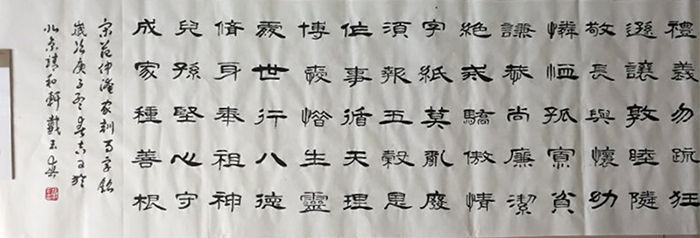 禮義勿疏狂
遜讓敦睦隣
敬長與懷幼
憐恤孤寡貧
謙恭尚廉潔
絕戒驕傲情
字紙莫亂廢
須報五穀恩
作事循天理
博愛惜生靈
處世行八德
脩身奉祖神
兒孫堅心守
成家種善根
宋范仲淹家訓百字銘
歲次庚子
北京 和軒戴玉